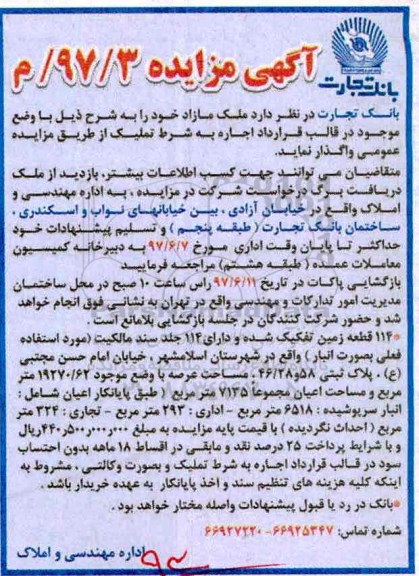 آگهی مزایده ۹۷/۳/ م
بانک تجارت
بانک تجارت در نظر دارد ملک مازاد خود را به شرح ذیل با وضع
موجود در قالب قرارداد اجاره به شرط تملیک از طریق مزایده
عمومی واگذار نماید.
متقاضیان می توانند جهت کسب اطلاعات بیشتر، بازدید از ملک
دریافت برگ درخواست شرکت در مزایده ، به اداره مهندسی و
املاک واقع در خیابان آزادی ، بین خیابانهای نواب و اسکندری ،
ساختمان بانک تجارت ( طبقه پنجم ) و تسلیم پیشنهادات خود
حداکثر تا پایان وقت اداری مورخ ۹۷/۶/۷ به دبیرخانه کمیسیون
معاملات عمده ( طبقه هشتم) مراجعه فرمایید
بازگشایی پاکات در تاریخ ۹۷/۶/۱۱ راس ساعت ۱۰ صبح در محل ساختمان
مدیریت امور تدارکات و مهندسی واقع در تهران به نشانی فوق انجام خواهد
شد و حضور شرکت کنندگان در جلسه بازگشایی بلامانع است .
*۱۱۴ قطعه زمین تفکیک شده و دارای ۱۱۴ جلد سند مالکیت (مورد استفاده
فعلی بصورت انبار ) واقع در شهرستان اسلامشهر ، خیابان امام حسن مجتبی
(ع) ، پلاک ثبتی ۵۸و۴۶/۲۸ ، مساحت عرصه با وضع موجود ۱۹۲۷۰/۶۲ متر
مربع و مساحت اعیان مجموعا ۷۱۳۵ متر مربع ( طبق پایانکار اعیان شامل :
انبار سرپوشیده : ۶۵۱۸ متر مربع - اداری : ۲۹۳ متر مربع - تجاری : ۳۲۴ متر
مربع ( احداث نگردیده ) با قیمت پایه مزایده به مبلغ ۴۴۰٫۵۰۰٫۰۰۰٫۰۰۰ریال
و با شرایط پرداخت ۲۵ درصد نقد و مابقی در اقساط ۱۸ ماهه بدون احتساب
سود در قالب قرارداد اجاره به شرط تملیک و بصورت وکالتی ، مشروط به
اینکه کلیه هزینه های تنظیم سند و اخذ پایانکار به عهده خریدار باشد .
*بانک در رد یا قبول پیشنهادات واصله مختار خواهد بود .
شماره تماس: ۶۶۹۲۵۳۴۷- ۶۶۹۲۷۲۲۰
اداره مهندسی و املاک